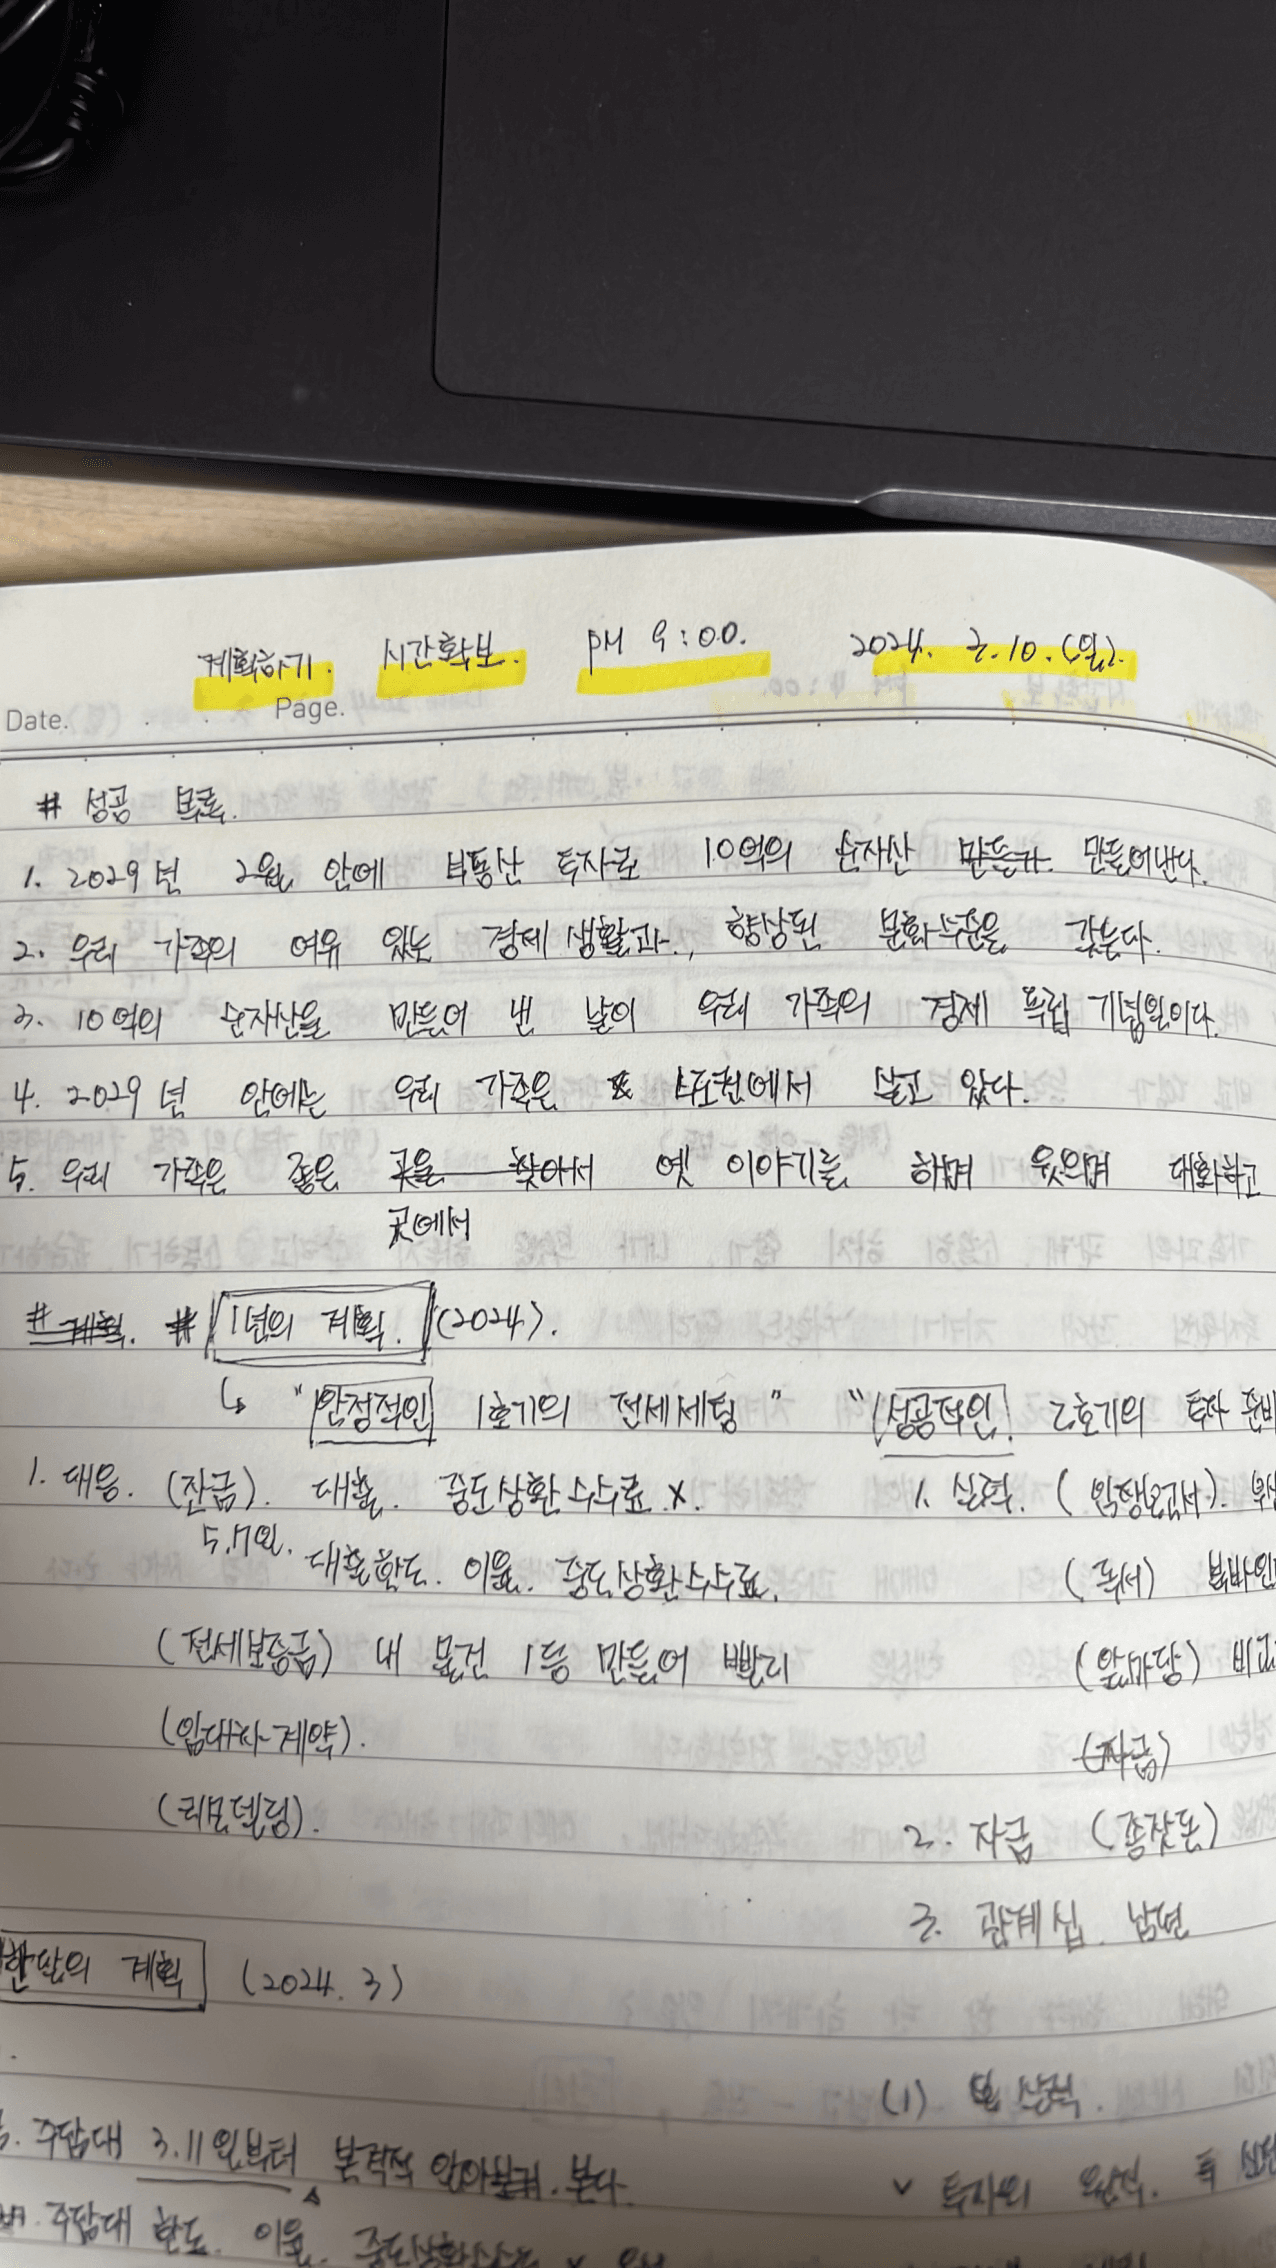 계획하기. 시간확보. PM 9:00. 2024. 3.10.(일).
Date. Page.
# 성공 목록.
1. 2029년 2월 안에 부동산 투자로 10억의 순자산 만든다. 만들어낸다.
2. 우리 가족의 여유 있는 경제생활과, 향상된 문화수준을 갖는다.
3. 10억의 순자산을 만들어 낸 날이 우리 가족의 경제 독립 기념일이다.
4. 2029년 안에는 우리 가족은 수도권에서 살고 있다.
5. 우리 가족은 좋은 곳을 찾아서 옛 이야기를 하며 웃으며 대화하고
곳에서
# 계획. # 1년의 계획. (2024).
↳ "안정적인 1호기의 전세세팅" "성공적인 2호기의 투자 준비
1. 대응. (잔금). 대출. 중도상환수수료 x. 1. 실력. (임장보고서).
5.17일. 대출한도. 이율. 중도상환수수료. (독서)
(전세보증금) 내 물건 1등 만들어 빨리 (앞마당) 비교
(임대차계약). (자금)
(리모델링). 2. 자금 (종잣돈)
3. 관계십. 남편
한달의 계획 (2024. 3)
(1)
주담대 3.11일부터 본격적 알아본다. v 투자의 원칙.
주담대 한도. 이율. 중도상환수수료 x